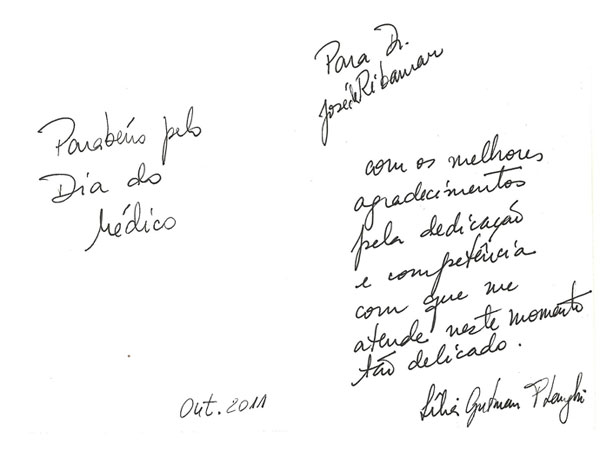 Parabéns pelo
Dia do
Médico
Out. 2011
Para Dr.
José de Ribamar
com os melhores
agradecimentos
pela dedicação
e competência
com que me
atende neste momento
tão delicado.
Lilia Gutman